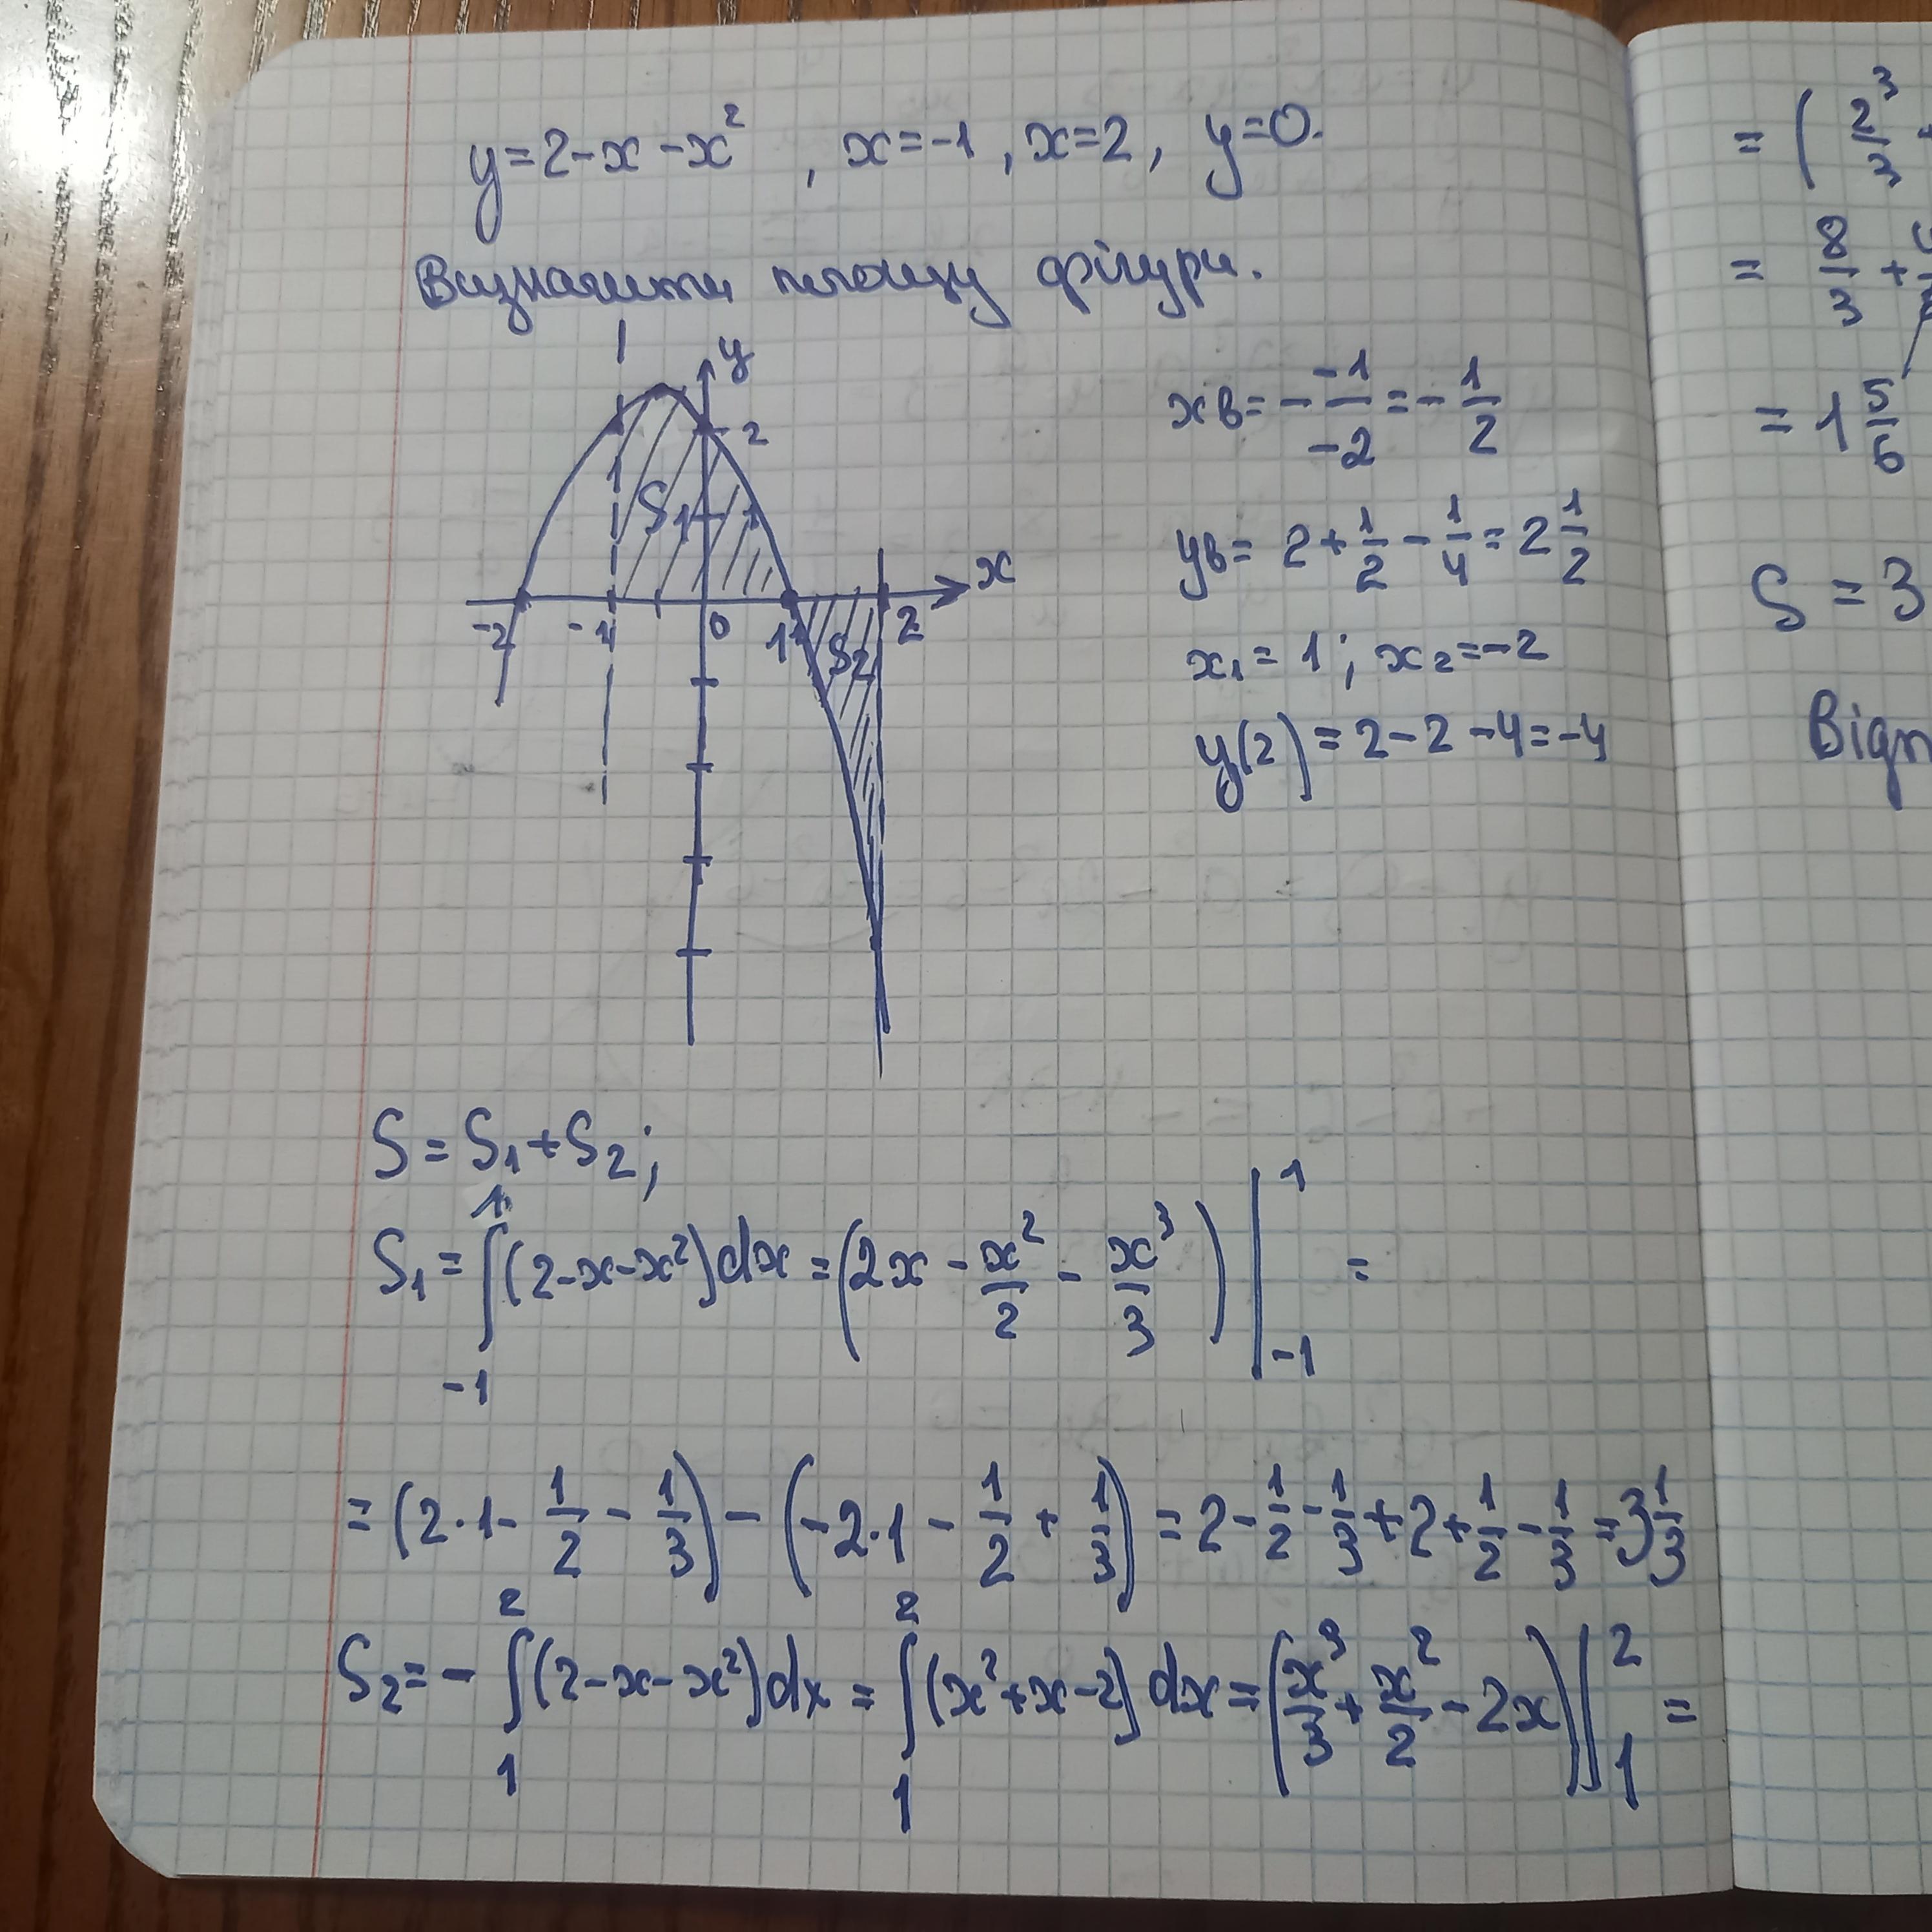 y=2-x-x², x=-1, x=2, y=0.
Визначити площу фігури.
y
2
1
S₁
x
-2
-1
0
1
2
S₂
xв = - -1/-2 = - 1/2
yв = 2 + 1/2 - 1/4 = 2 1/2
x₁ = 1; x₂ = -2
y(2) = 2-2-4=-4
S = S₁+S₂;
S₁ = ∫₋₁¹ (2-x-x²)dx = (2x - x²/2 - x³/3) |₋₁¹ =
= (2·1 - 1/2 - 1/3) - (-2·1 - 1/2 + 1/3) = 2 - 1/2 - 1/3 + 2 + 1/2 - 1/3 = 3 1/3
S₂ = - ∫₁² (2-x-x²)dx = ∫₁² (x²+x-2) dx = (x³/3 + x²/2 - 2x) |₁² =
= ( 2³/3 +
= 8/3 +
= 1 5/6
S = 3
Відп